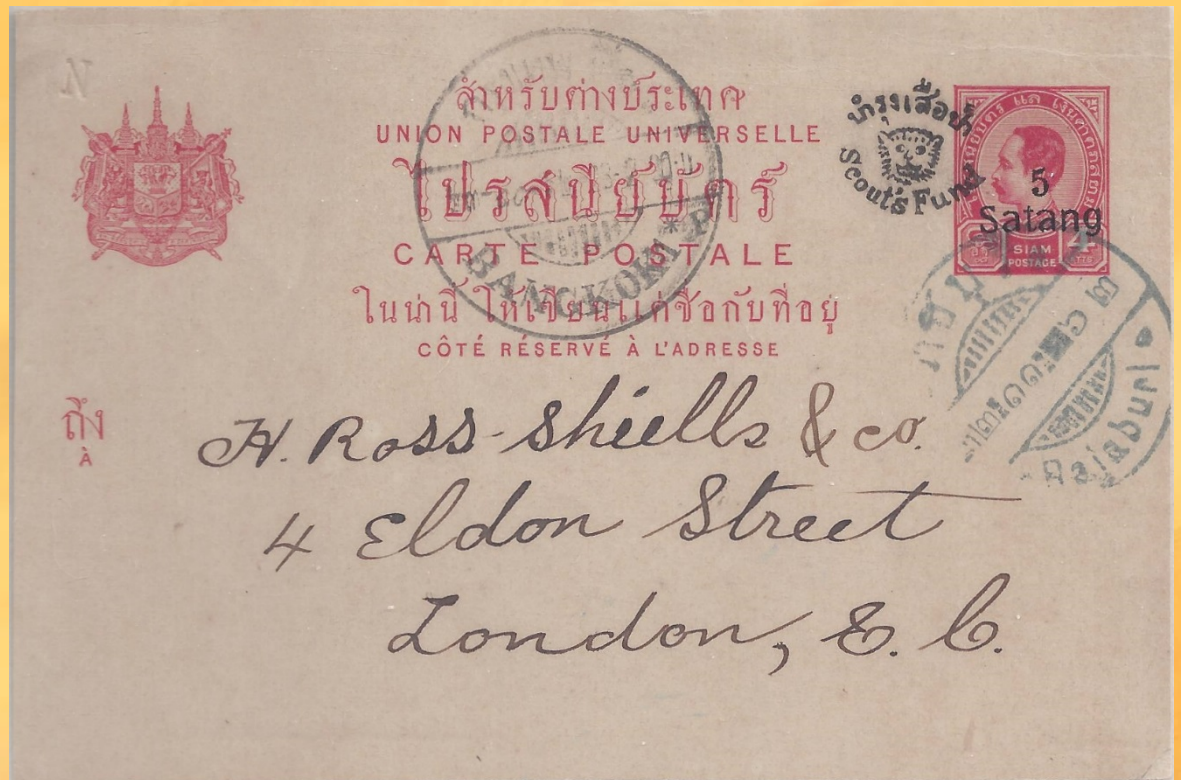 สำหรับต่างประเทศ
UNION POSTALE UNIVERSELLE
ไปรสนีย์บัตร์
CARTE POSTALE
ในน่านี้ ให้เขียนแต่ชื่อกับที่อยู่
CÔTÉ RÉSERVÉ À L'ADRESSE
บำรุงเสือป่า
Scout's Fund
5
Satang
4
SIAM
POSTAGE
BANGKOK
ราชบุรี
Rajaburi
ถึง
A
H. Ross-Shiells & co.
4 Eldon Street
London, E. C.